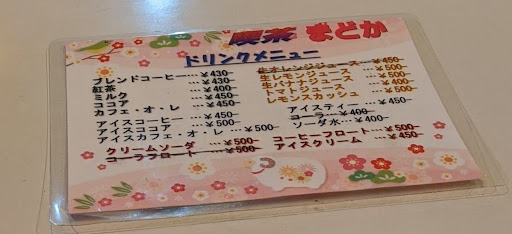 喫茶 まどか
ドリンクメニュー
ブレンドコーヒー…￥430
紅茶 …￥430
ミルク …￥400
ココア …￥450
カフェ・オ・レ …￥450
アイスコーヒー …￥450
アイスココア …￥500
アイスカフェ・オ・レ …￥500
クリームソーダ …￥500
コーラフロート …￥500
生オレンジジュース…￥450
生レモンジュース …￥500
生バナナジュース …￥500
トマトジュース …￥400
レモンスカッシュ …￥500
アイスティー …￥450
コーラ …￥400
ソーダ水 …￥400
コーヒーフロート …￥500
アイスクリーム …￥450